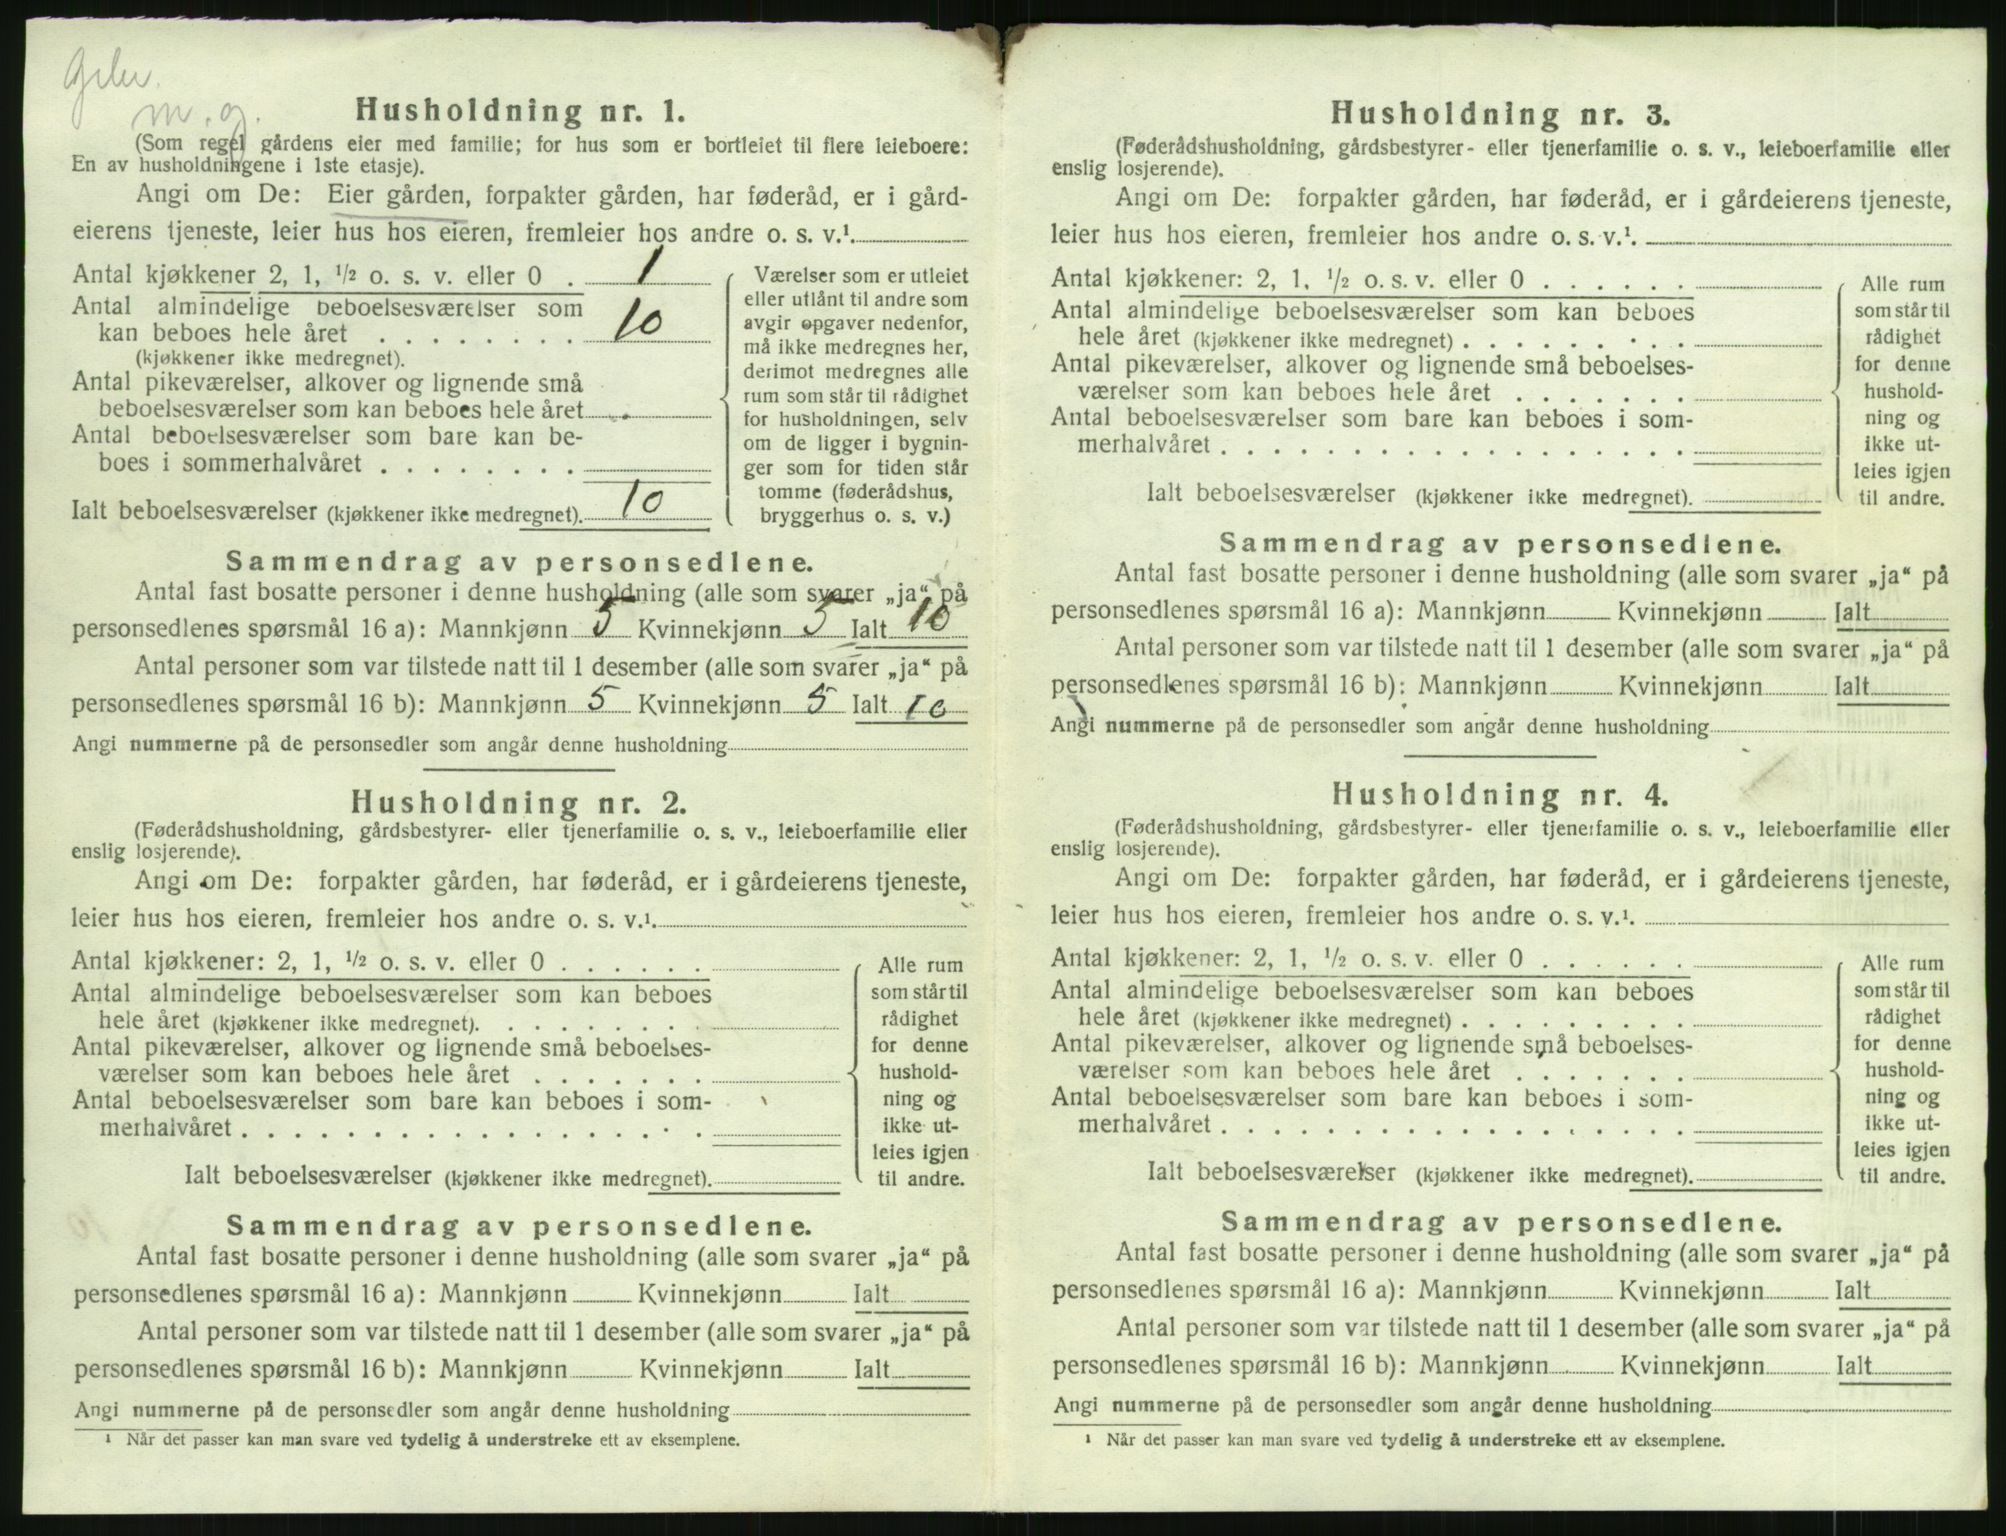 m. g.
Husholdning nr. 1.
(Som regel gårdens eier med familie; for hus som er bortleiet til flere leieboere:
En av husholdningene i 1ste etasje).
Angi om De: Eier gården, forpakter gården, har føderåd, er i gård-
eierens tjeneste, leier hus hos eieren, fremleier hos andre o. s. v.¹.
Antal kjøkkener 2, 1, ½ o. s. v. eller 0 . 1
Antal almindelige beboelsesværelser som
kan beboes hele året . . . . . . . . 10
(kjøkkener ikke medregnet).
Antal pikeværelser, alkover og lignende små
beboelsesværelser som kan beboes hele året
Antal beboelsesværelser som bare kan be-
boes i sommerhalvåret . . . . . . . .
Ialt beboelsesværelser (kjøkkener ikke medregnet). 10
Værelser som er utleiet
eller utlånt til andre som
avgir opgaver nedenfor,
må ikke medregnes her,
derimot medregnes alle
rum som står til rådighet
for husholdningen, selv
om de ligger i bygnin-
ger som for tiden står
tomme (føderådshus,
bryggerhus o. s. v.)
Sammendrag av personsedlene.
Antal fast bosatte personer i denne husholdning (alle som svarer „ja“ på
personsedlenes spørsmål 16 a): Mannkjønn 5 Kvinnekjønn 5 Ialt 10
Antal personer som var tilstede natt til 1 desember (alle som svarer „ja“ på
personsedlenes spørsmål 16 b): Mannkjønn 5 Kvinnekjønn 5 Ialt 10
Angi nummerne på de personsedler som angår denne husholdning
Husholdning nr. 2.
(Føderådshusholdning, gårdsbestyrer- eller tjenerfamilie o. s. v., leieboerfamilie eller
enslig losjerende).
Angi om De: forpakter gården, har føderåd, er i gårdeierens tjeneste,
leier hus hos eieren, fremleier hos andre o. s. v.¹.
Antal kjøkkener: 2, 1, ½ o. s. v. eller 0 . . . . . .
Antal almindelige beboelsesværelser som kan beboes
hele året (kjøkkener ikke medregnet). . . . . . . . .
Antal pikeværelser, alkover og lignende små beboelses-
værelser som kan beboes hele året . . . . . . .
Antal beboelsesværelser som bare kan beboes i som-
merhalvåret . . . . . . . . . . . . . . . . .
Ialt beboelsesværelser (kjøkkener ikke medregnet).
Alle rum
som står til
rådighet
for denne
hushold-
ning og
ikke ut-
leies igjen
til andre.
Sammendrag av personsedlene.
Antal fast bosatte personer i denne husholdning (alle som svarer „ja“ på
personsedlenes spørsmål 16 a): Mannkjønn Kvinnekjønn Ialt
Antal personer som var tilstede natt til 1 desember (alle som svarer „ja“ på
personsedlenes spørsmål 16 b): Mannkjønn Kvinnekjønn Ialt
Angi nummerne på de personsedler som angår denne husholdning
¹ Når det passer kan man svare ved tydelig å understreke ett av eksemplene.
Husholdning nr. 3.
(Føderådshusholdning, gårdsbestyrer- eller tjenerfamilie o. s. v., leieboerfamilie eller
enslig losjerende).
Angi om De: forpakter gården, har føderåd, er i gårdeierens tjeneste,
leier hus hos eieren, fremleier hos andre o. s. v.¹.
Antal kjøkkener: 2, 1, ½ o. s. v. eller 0 . . . . . .
Antal almindelige beboelsesværelser som kan beboes
hele året (kjøkkener ikke medregnet) . . . . . . . . .
Antal pikeværelser, alkover og lignende små beboelses-
værelser som kan beboes hele året . . . . . . .
Antal beboelsesværelser som bare kan beboes i som-
merhalvåret . . . . . . . . . . . . . . . . . .
Ialt beboelsesværelser (kjøkkener ikke medregnet).
Alle rum
som står til
rådighet
for denne
hushold-
ning og
ikke ut-
leies igjen
til andre.
Sammendrag av personsedlene.
Antal fast bosatte personer i denne husholdning (alle som svarer „ja“ på
personsedlenes spørsmål 16 a): Mannkjønn Kvinnekjønn Ialt
Antal personer som var tilstede natt til 1 desember (alle som svarer „ja“ på
personsedlenes spørsmål 16 b): Mannkjønn Kvinnekjønn Ialt
Angi nummerne på de personsedler som angår denne husholdning
Husholdning nr. 4.
(Føderådshusholdning, gårdsbestyrer- eller tjenerfamilie o. s. v., leieboerfamilie eller
enslig losjerende).
Angi om De: forpakter gården, har føderåd, er i gårdeierens tjeneste,
leier hus hos eieren, fremleier hos andre o. s. v.¹.
Antal kjøkkener: 2, 1, ½ o. s. v. eller 0 . . . . . .
Antal almindelige beboelsesværelser som kan beboes
hele året (kjøkkener ikke medregnet) . . . . . . . . .
Antal pikeværelser, alkover og lignende små beboelses-
værelser som kan beboes hele året . . . . . . .
Antal beboelsesværelser som bare kan beboes i som-
merhalvåret . . . . . . . . . . . . . . . . . .
Ialt beboelsesværelser (kjøkkener ikke medregnet).
Alle rum
som står til
rådighet
for denne
hushold-
ning og
ikke ut-
leies igjen
til andre.
Sammendrag av personsedlene.
Antal fast bosatte personer i denne husholdning (alle som svarer „ja“ på
personsedlenes spørsmål 16 a): Mannkjønn Kvinnekjønn Ialt
Antal personer som var tilstede natt til 1 desember (alle som svarer „ja“ på
personsedlenes spørsmål 16 b): Mannkjønn Kvinnekjønn Ialt
Angi nummerne på de personsedler som angår denne husholdning
¹ Når det passer kan man svare ved tydelig å understreke ett av eksemplene.